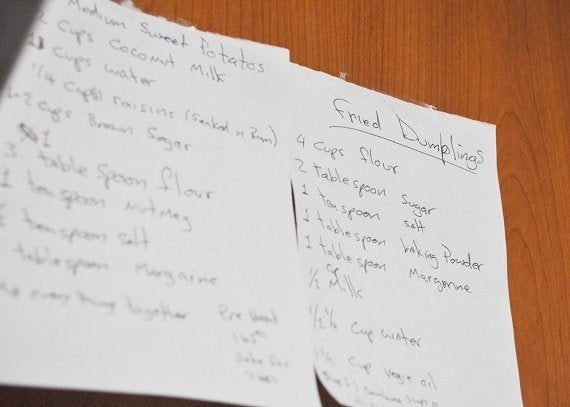 Medium Sweet Potatos
2 Cups Coconut Milk
Cups water
1/4 Cup(s) raisins (soaked in Rum)
2 Cups Brown Sugar
1
3 table spoon flour
1 teaspoon NutMeg
teaspoon salt
tablespoon Margarine
everything together
Pre Heat
165
Bake for
Fried Dumplings
4 Cups flour
2 Tablespoon Sugar
1 Teaspoon salt
1 Tablespoon baking Powder
1 tablespoon Margerine
1/2 Milk
Cup water
Cup vegie oil